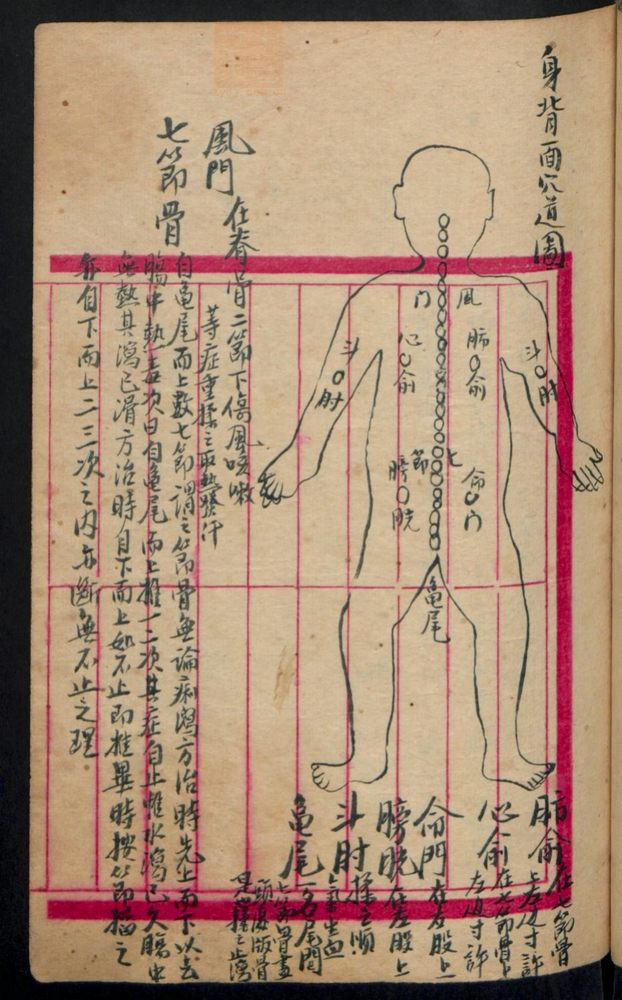 身背面穴道圖
風門
肺俞
心俞
斗肘
斗肘
七節
命門
膀胱
龜尾
肺俞 在七節骨
上右邊寸許
心俞 在七節骨上
左边寸許
命門 在右股上
膀胱 在左股上
斗肘 揉之順
氣生血
龜尾 一名尾閭
七節骨盡
頭處版骨
是也揉之止瀉
風門 在脊骨二節下傷風咳嗽
等症重揉之取熱發汗
七節骨 自龜尾而上數七節謂之節骨無論痢瀉方治時先上而下以去
腸中熱毒次日自龜尾而上推一二次其症自止惟水瀉已久腸中
無熱其瀉已滑方治時自下而上如不止即推畢時按節搯之
亦自下而上二三次之內亦斷無不止之理